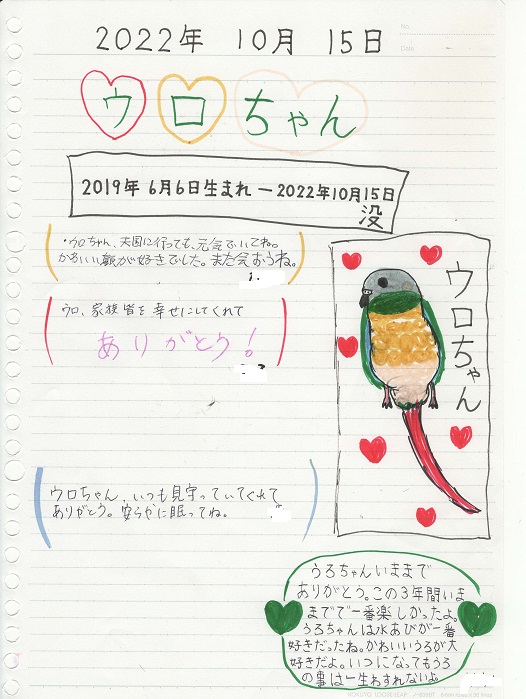 No.
Date
2022年 10月 15日
ウロちゃん
2019年 6月6日生まれ ー 2022年10月15日
没
・ウロちゃん、天国に行っても、元気でいてね。
かわいい顔が好きでした。また会おうね。
ウロ、家族皆を幸せにしてくれて
ありがとう!
ウロちゃん
ウロちゃん、いつも見守っていてくれて
ありがとう。安らかに眠ってね。
うろちゃんいままで
ありがとう。この3年間いま
までで一番楽しかったよ。
うろちゃんは水あびが一番
好きだったね。かわいいうろが大
好きだよ。いつになってもうろ
の事は一生わすれないよ。
KOKUYO LOOSE-LEAF